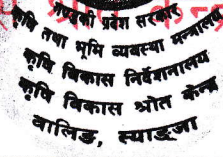 गण्डकी प्रदेश सरकार
कृषि तथा भूमि व्यवस्था मन्त्रालय
कृषि विकास निर्देशनालय
कृषि विकास श्रोत केन्द्र
वालिङ, स्याङ्जा